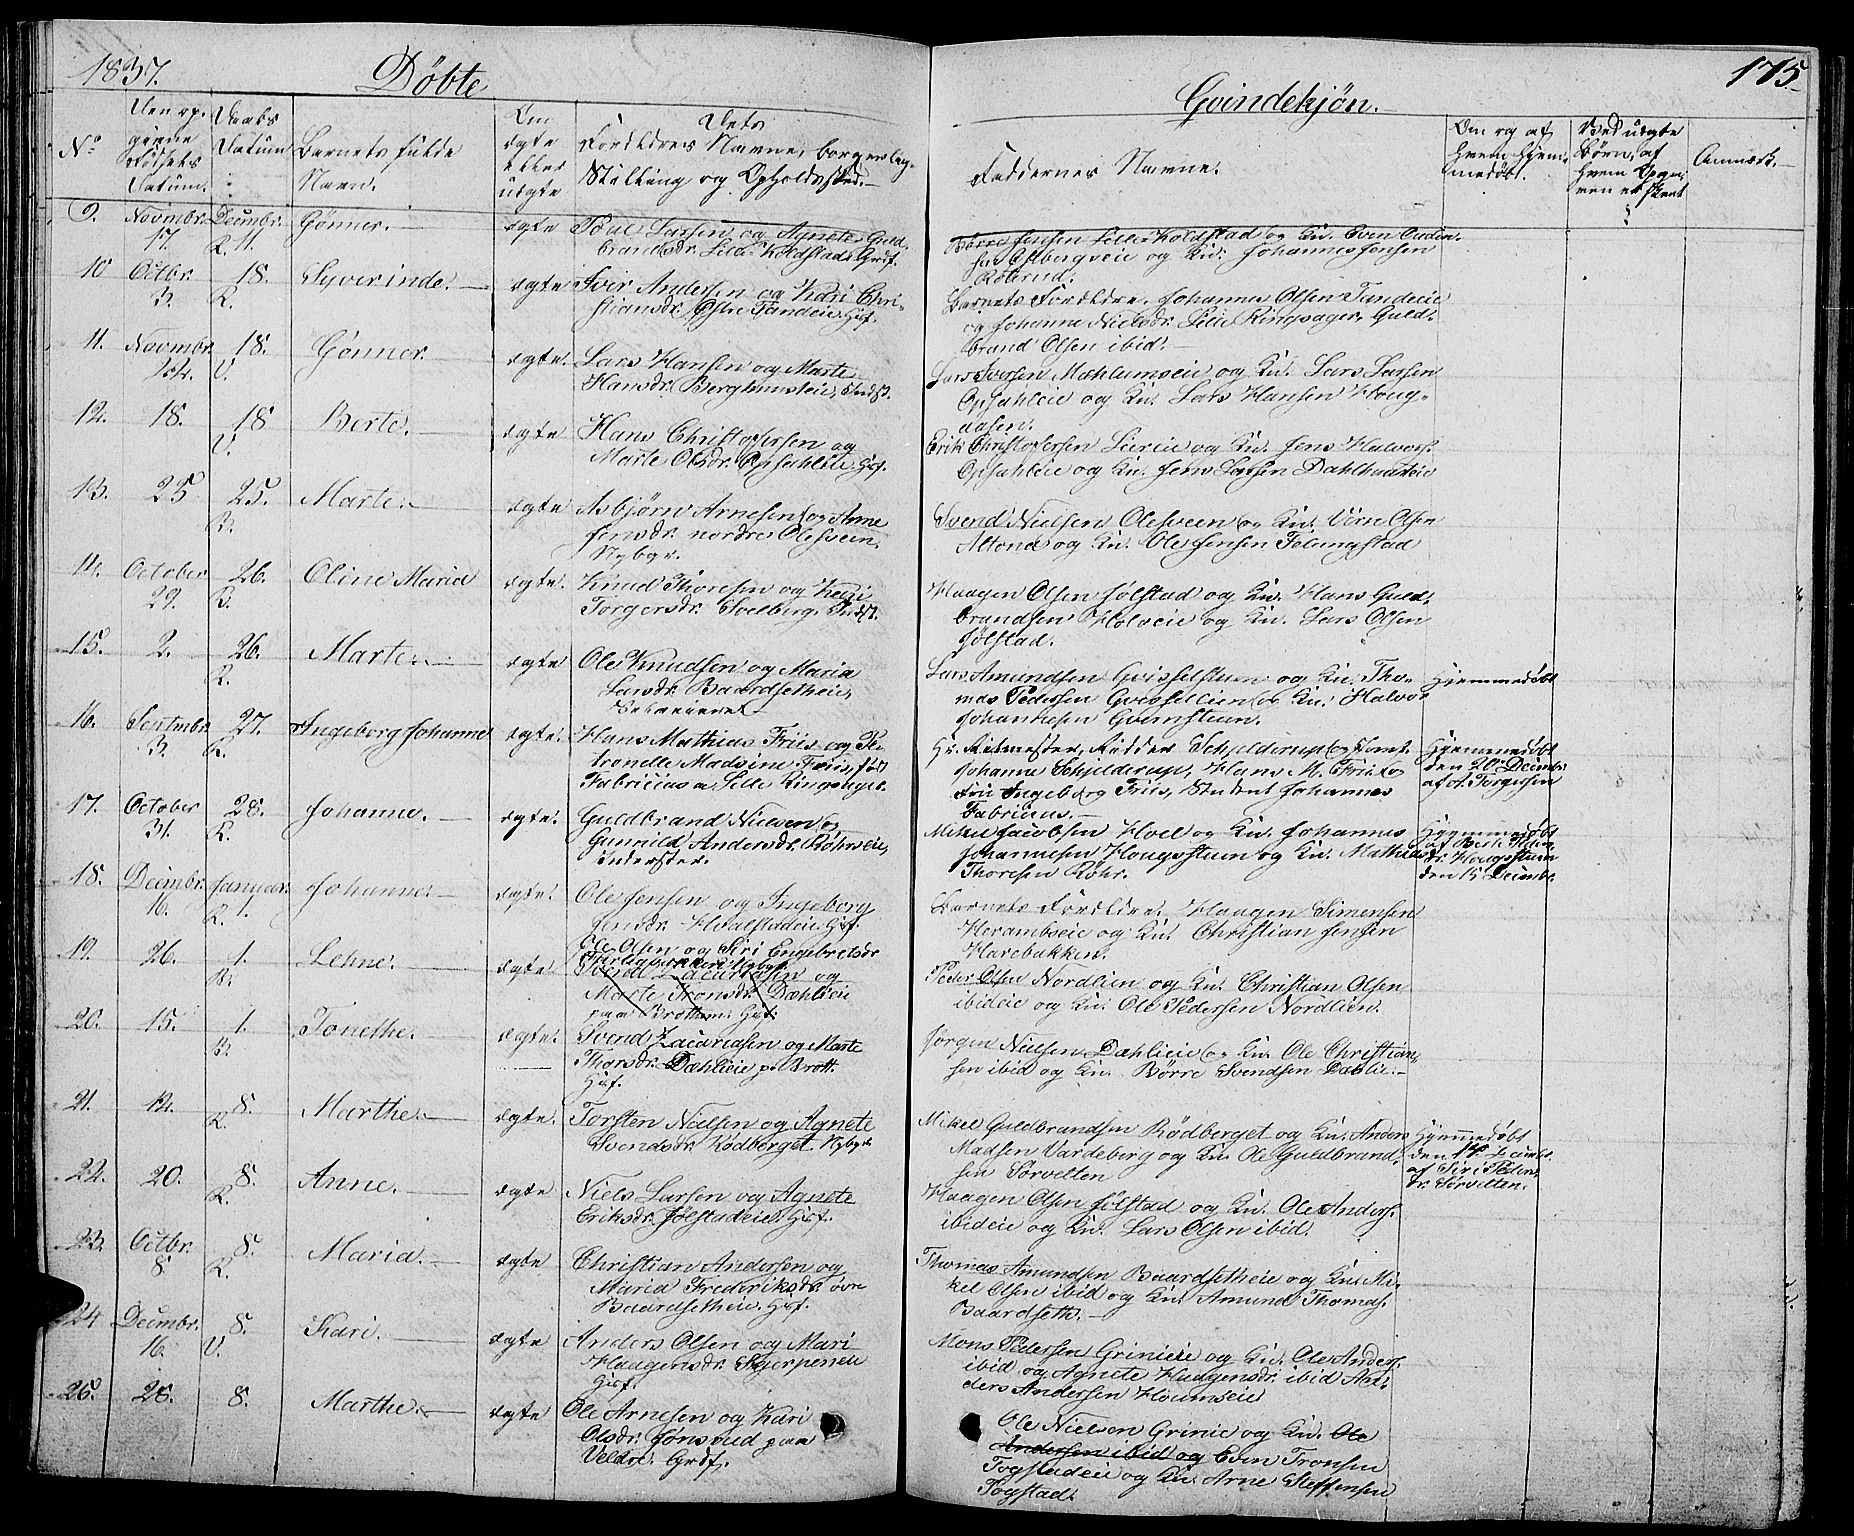 1837.
Döbte
Qvindekjön.
175.
No
Den op-
givne
Födsels
Datum.
Daabs
Datum
Barnets fulde
Navn.
Om
ægte
eller
uægte
Dets
Forældres Navne, borgerlige
Stilling og Opholdssted.
Faddernes Navne.
Om og af
hvem hjem-
medöbt.
Ved uægte
Börn, af
hvem Opgi-
ven er skeet
Anmærk.
9. Novmbr. 17. Decmbr. R. 11. Gönner. ægte Poul Larsen og Agnete Guld-
brandsdr. Lille Koldstad Grdf.
Börre Jensen Lille Koldstad og Kn. Even Amden-
sen Ostbergeie og Kn. Johannes Jensen
Röterud.
10 Octbr. 3. 18. R. Syverinde. ægte Iver Andersen og Kari Chri-
stiansdr. Tandeie Hsf.
Barnets Forældre. Johanne Olsen Tandeie
og Johanne Nielsdr. Lille Ringsager. Guld-
brand Olsen ibid.
11. Novmbr. 14. 18. V. Gönner. ægte. Lars Hansen og Marte
Hansdr. Indst.
Lars Iversen Mæhlumseie og Kn. Lars Larsen
Opsahleie og Kn. Lars Hansen Houg-
aasen.
12. 18. 18 V. Berte. ægte Hans Christofersen og
Marte Olsdr. Opsahleie Hsf.
Erik Christofersen Liereie og Kn. Jens Halvors.
Opsahleie og Kn. Jens Larsen
13. 25 25. B. Marte. ægte Asbjörn Arnesen og Anne
Jensdr. nordre Olesveen
Nybgr.
Svend Nielsen Olesveen og Kn. Olsen
Altona og Kn. Ole Jensen
14. October 29. 26. B. Oline Maria ægte. Knud Thoresen og Kari
Torgersdr. Indst.
Haagen Olsen Jölstad og Kn. Hans Guld-
brandsen Holveie og Kn. Lars Olsen
Jölstad.
15. 2. 26. R. Marte. ægte Ole Knudsen og Maria
Larsdr. Baardsetheie,
Lars Amundsen og Kn. Tho-
mas Pedersen og Kn. Halvor
Johannesen Qvernsteun.
Hjemmedöbt
16. Septmbr. 3. 27. R. Ingeborg Johanne ægte. Hans Mathias Friis og Pe-
tronelle Madsine Friis, föd
Fabricius a Lille Ringsager.
Hr. Ritmester, Ridder Schjelderup og Jomf.
Johanne Schjelderup, Hans M. Friis og
Fru Ingeborg Friis, Student Johannes
Fabricius.
Hjemmedöbt
den 20 Decmbr.
af A. Torgersen
17. October 31. 28. R. Johanne. ægte. Guldbrand Nielsen og
Gunnild Andersdr. Röhrseie,
Inderster.
Mikel Jacobsen Hoel og Kn. Johannes
Johannesen Hougssteun og Kn. Mathias
Thoresen Röhr.
Hjemmedöbt
af Berte
dr. Hougssteun
den 15 Decmbr.
18. Decmbr. 16. Januar. R. 1. Johanne. ægte. Ole Jensen og Ingeborg
Jensdr. Hsf.
Barnets Forældre. Haagen Simensen
Herambseie og Kn. Christian Jensen
Harebakken.
19. 26. 1. B. Lehne. ægte Ole Olsen og Siri Engebretsdr
Nybgr.
Svend Zacariasen og
Marte Tronsdr. Dæhlieie
paa Brottum. Hsf.
Peder Olsen Nordlien og Kn. Christian Olsen
ibideie og Kn. Ole Pedersen Nordlien.
20. 15. 1. B. Tonethe. ægte. Svend Zacariasen og Marte
Thorsdr. Dæhlieie p. Brott.
Hsf.
Jörgen Nielsen Dæhlieie og Kn. Ole Christian-
sen ibid og Kn. Börre Svendsen Dæhlie.
21. 12. 8. R. Marthe. ægte. Torsten Nielsen og Agnete
Svendsdr. Rödberget Nybgr
Mikel Guldbrandsen Rödberget og Kn. Anders
Madsen Vardeberg og Kn. Ole Guldbrand-
sen Sörvelten
Hjemmedöbt
den 14 Decmbr.
af Siri Peders-
dr. Sörvelten.
22. 20. 8. R. Anne. ægte Niels Larsen og Agnete
Eriksdr. Jölstadeie. Hsf.
Haagen Olsen Jölstad og Kn. Ole Anders.
ibideie og Kn. Lars Olsen ibid.
23. Octbr. 8 8. R. Maria. ægte Christian Andersen og
Maria Frederiksdr. övre
Baardsetheie. Hsf.
Thomas Amundsen Baardsetheie og Kn. Mi-
kel Olsen ibid og Kn. Amund Thomas.
Baardseth.
24 Decmbr. 16. 8. V. Kari. ægte Anders Olsen og Mari
Haagensdr. Skjerpeneie
Hsf.
Mons Pedersen Grinieie og Kn. Ole Anders.
ibid og Agnete Haagensdr. ibid An-
ders Andersen Houmseie
25. 28. 8. Marthe. ægte Ole Arnesen og Kari
Olsdr. Jönsrud paa
Veldre. Grdf.
Ole Nielsen Grinie og Kn. Ole
Andersen ibid og Even Tronsen
Togstadeie og Kn. Arne Steffensen
Togstad.